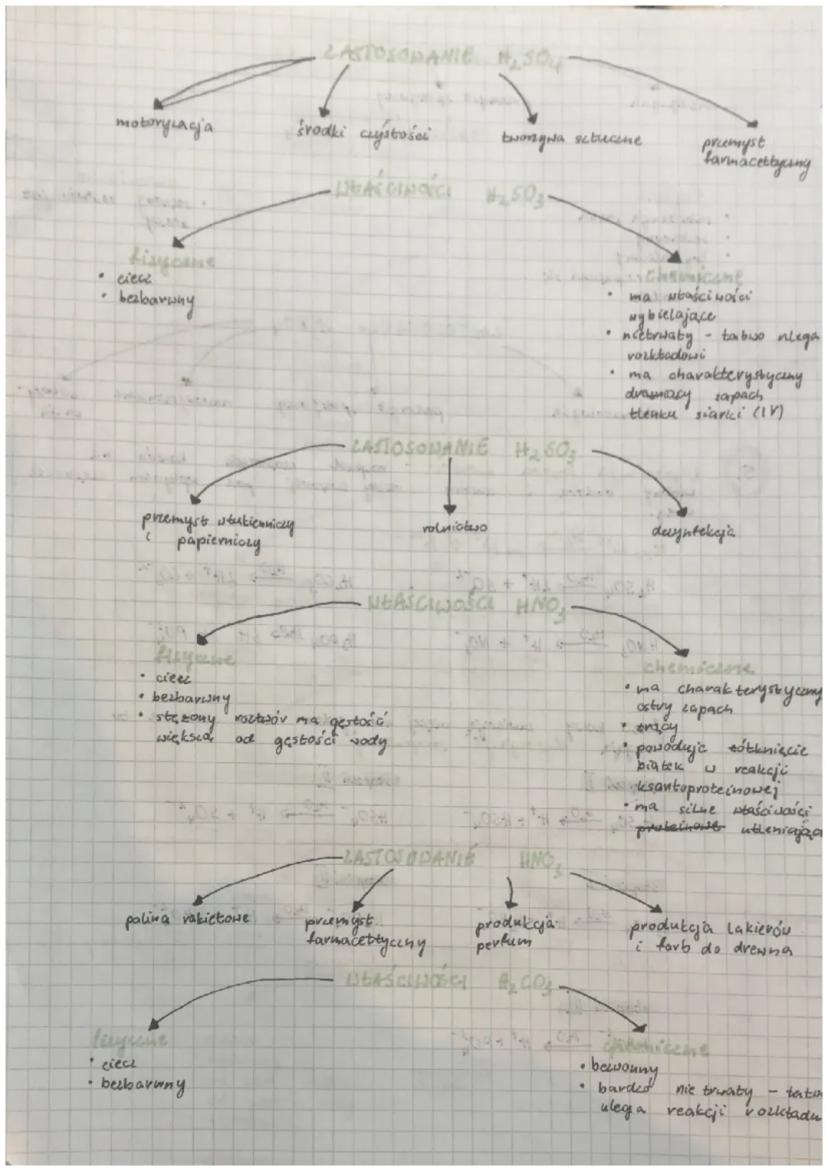 ZASTOSOWANIE H₂SO₄
motoryzacja
środki czystości
tworzywa sztuczne
przemysł
farmaceutyczny
WŁAŚCIWOŚCI H₂SO₃
fizyczne
• ciecz
• bezbarwny
chemiczne
• ma właściwości
wybielające
• nietrwały - łatwo ulega
rozkładowi
• ma charakterystyczny
drażniący zapach
tlenku siarki (IV)
ZASTOSOWANIE H₂SO₃
przemysł włókienniczy
i papierniczy
rolnictwo
dezynfekcja
WŁAŚCIWOŚCI HNO₃
fizyczne
• ciecz
• bezbarwny
• stężony roztwór ma gęstość
większą od gęstości wody
chemiczne
• ma charakterystyczny
ostry zapach
• żrący
• powoduje żółknięcie
białek w reakcji
ksantoproteinowej
• ma silne właściwości
proteinowe utleniające
ZASTOSOWANIE HNO₃
paliwa rakietowe
przemysł
farmaceutyczny
produkcja
perfum
produkcja lakierów
i farb do drewna
WŁAŚCIWOŚCI H₂CO₃
fizyczne
• ciecz
• bezbarwny
chemiczne
• bezwonny
• bardzo nietrwały - łatwo
ulega reakcji rozkładu